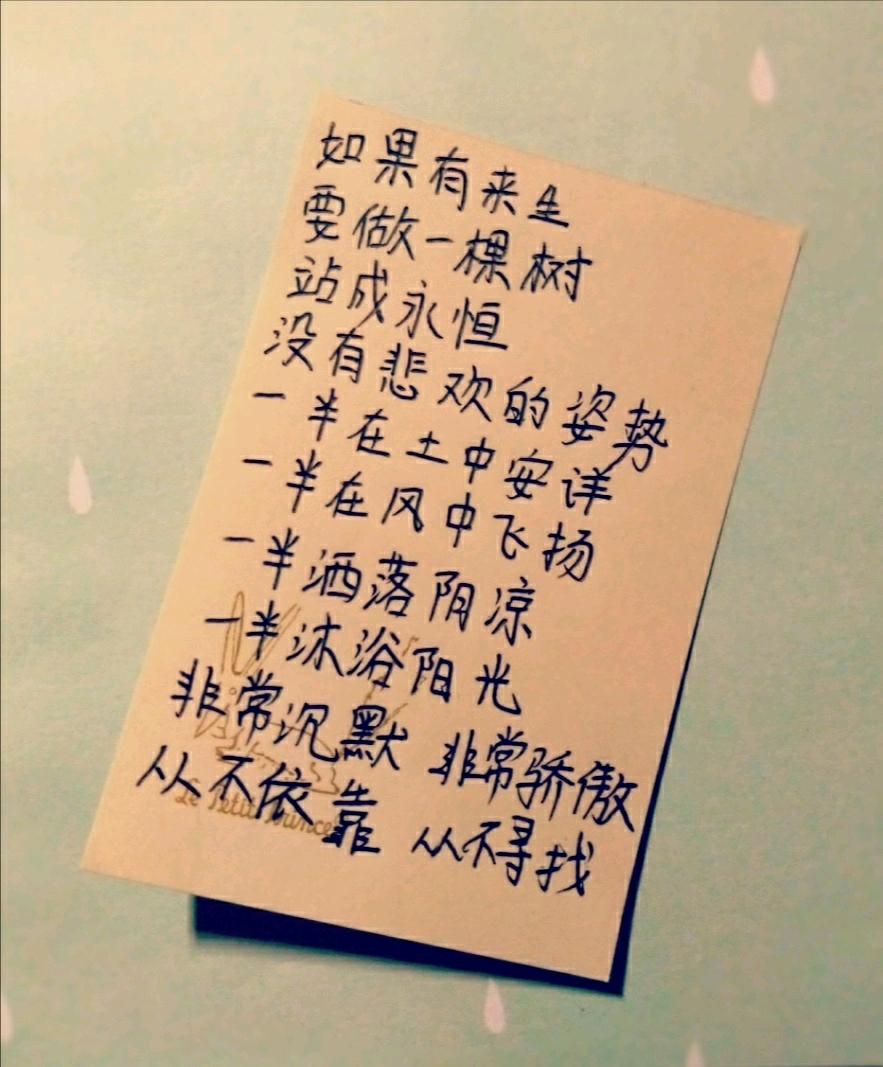 如果有来生
要做一棵树
站成永恒
没有悲欢的姿势
一半在土中安详
一半在风中飞扬
一半洒落阴凉
一半沐浴阳光
非常沉默 非常骄傲
从不依靠 从不寻找
Le Petit Prince